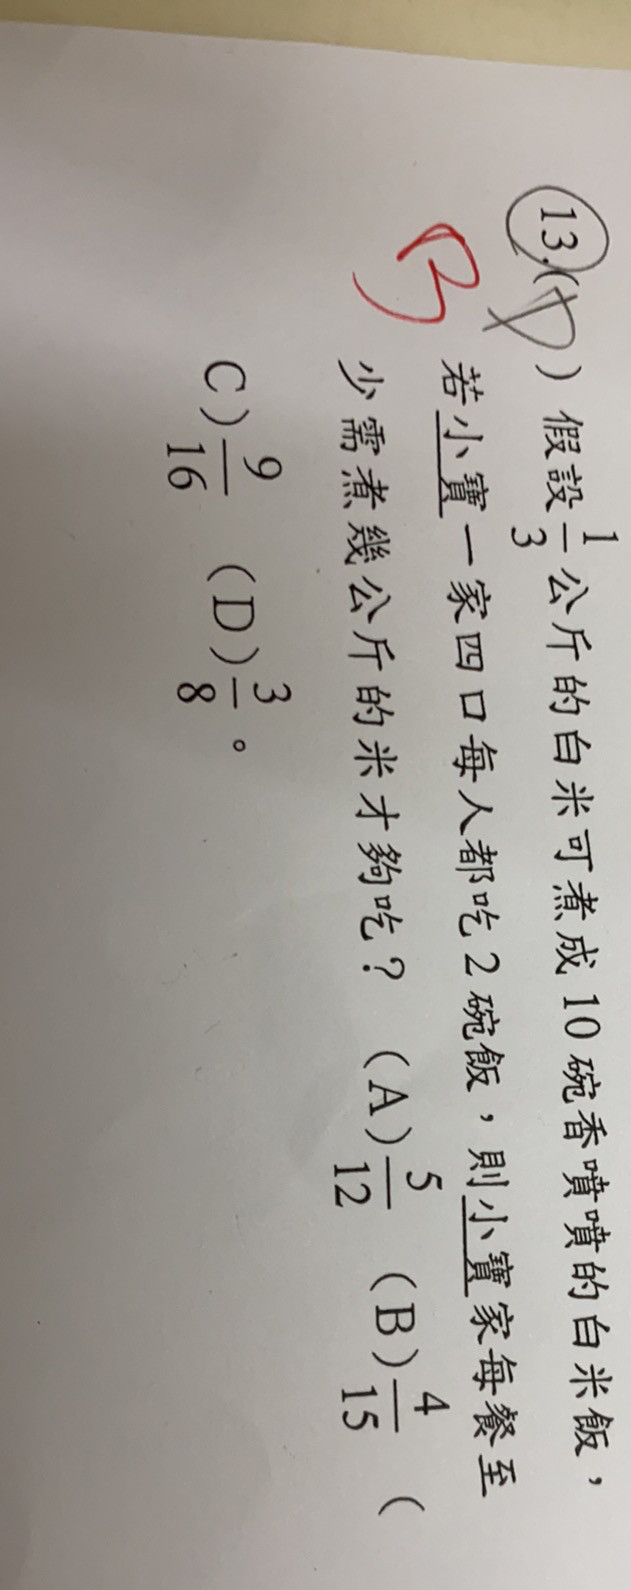 13.(D)假設1/3公斤的白米可煮成10碗香噴噴的白米飯，
B
若小寶一家四口每人都吃2碗飯，則小寶家每餐至
少需煮幾公斤的米才夠吃？ (A)5/12 (B)4/15 (
C)9/16 (D)3/8。